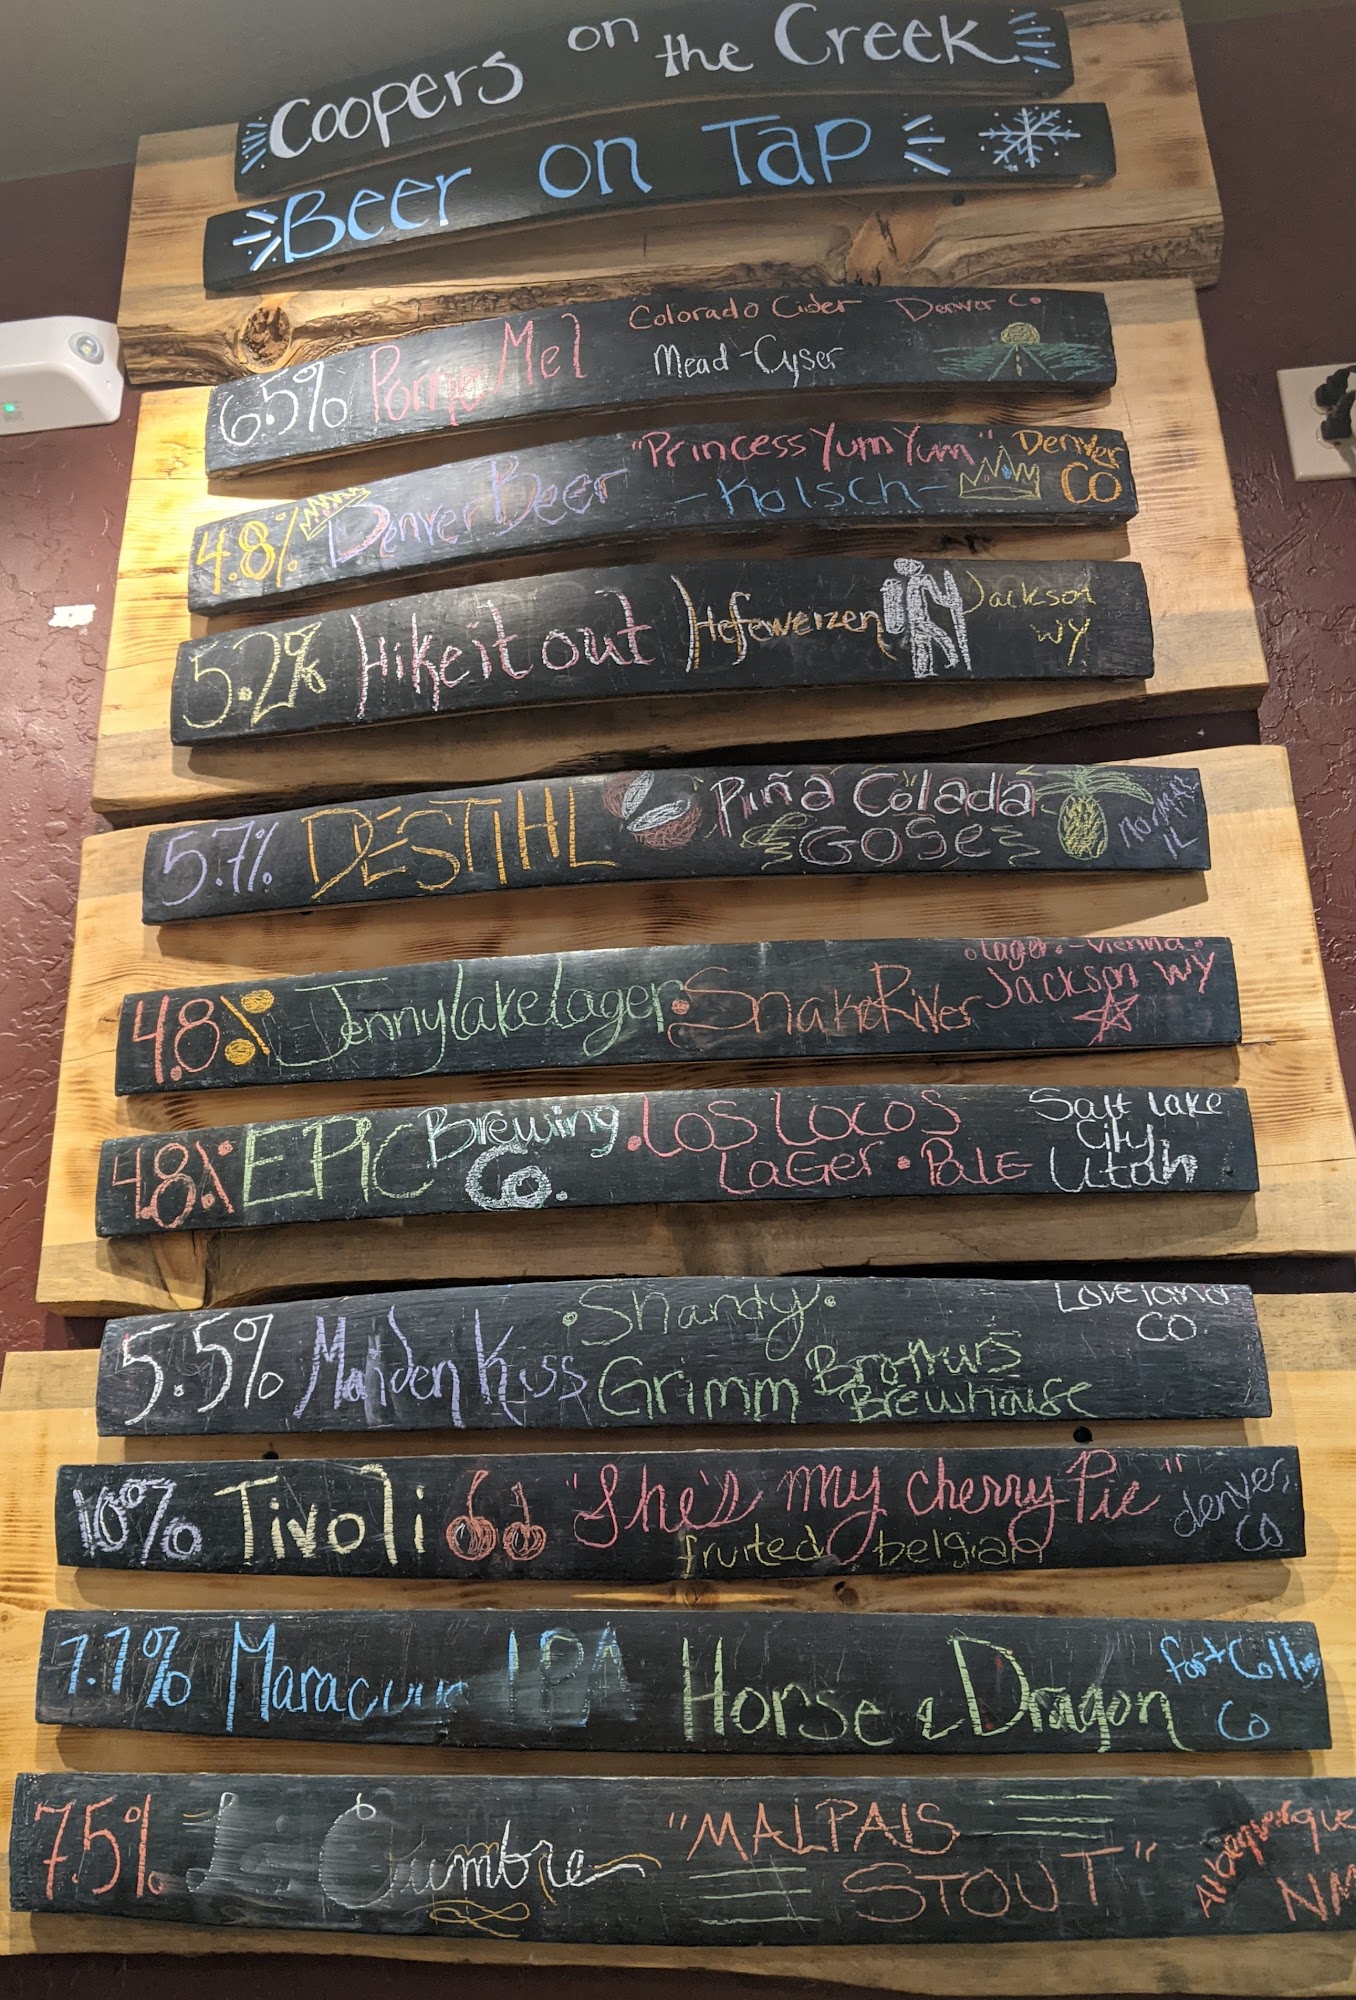 Coopers on the Creek
Beer on Tap
6.5% Pomme Mel Colorado Cider Denver Co
Mead-Cyser
4.8% Denver Beer "Princess Yum Yum" Denver CO
-Kolsch-
5.2% Hike it out Hefeweizen Jackson WY
5.7% DESTIHL Piña Colada GOSE Normal IL
Lager - Vienna
4.8% Jenny Lake Lager Snake River Jackson WY
4.8% EPIC Brewing Co. Los Locos Salt Lake City Utah
LaGer • Pale
5.5% Maiden Kiss Shandy Loveland CO.
Grimm Brothers Brewhouse
10% Tivoli "She's my cherry Pie" denver CO
fruited belgian
7.7% IPA Horse & Dragon Fort Collins Co
7.5% Cumbre "MALPAIS STOUT" Albequerque NM